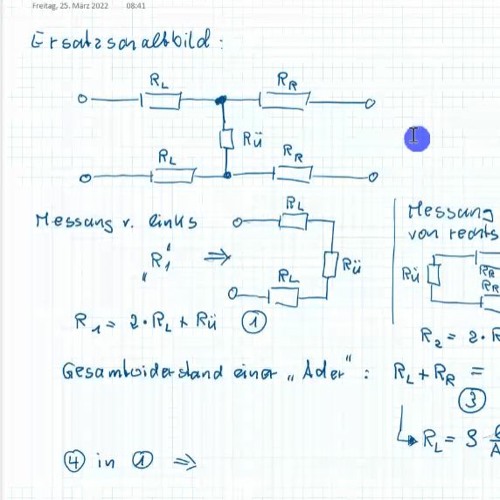 Freitag, 25. März 2022 08:41
Ersatzschaltbild:
R_L R_R
Rü
R_L R_R
Messung v. links
"R_1" ⇒
R_L
Rü
R_L
Messung
von rechts
Rü
R_R
R_R
R_1 = 2·R_L + Rü ①
R_2 = 2·R
Gesamtwiderstand einer „Ader": R_L + R_R =
③
R_L = ϱ
④ in ① ⇒